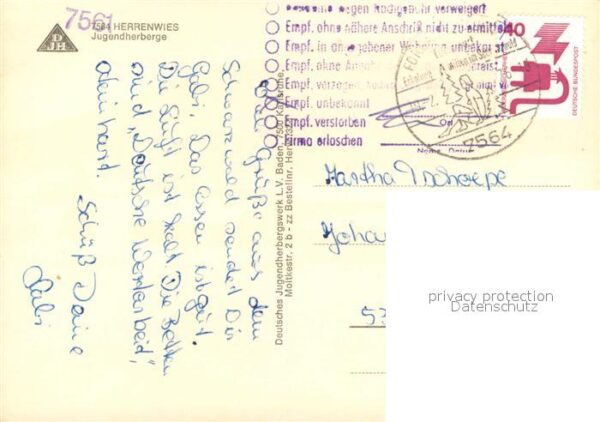 7561
7564 HERRENWIES
Jugendherberge
DJH
Viele Grüße aus dem
Schwarzwald sendet Dir
Gabi. Das Essen ist gut.
Die Luft ist kalt. Die Betten
sind „Deutsche Wertarbeit"
Schüß Deine
Gabi
Deutsches Jugendherbergswerk L.V. Baden, 7500 Karlsruhe,
Moltkestr. 2 b - zz Bestellnr. Her
wegen Nachgebühr verweigert
Empf. ohne nähere Anschrift nicht zu ermitteln
Empf. in angegebener Wohnung unbekannt
Empf. ohne Angabe
Empf. verzogen
Empf. unbekannt
Empf. verstorben
Firma erloschen
7564
40
DEUTSCHE BUNDESPOST
Martha
53
privacy protection
Datenschutz